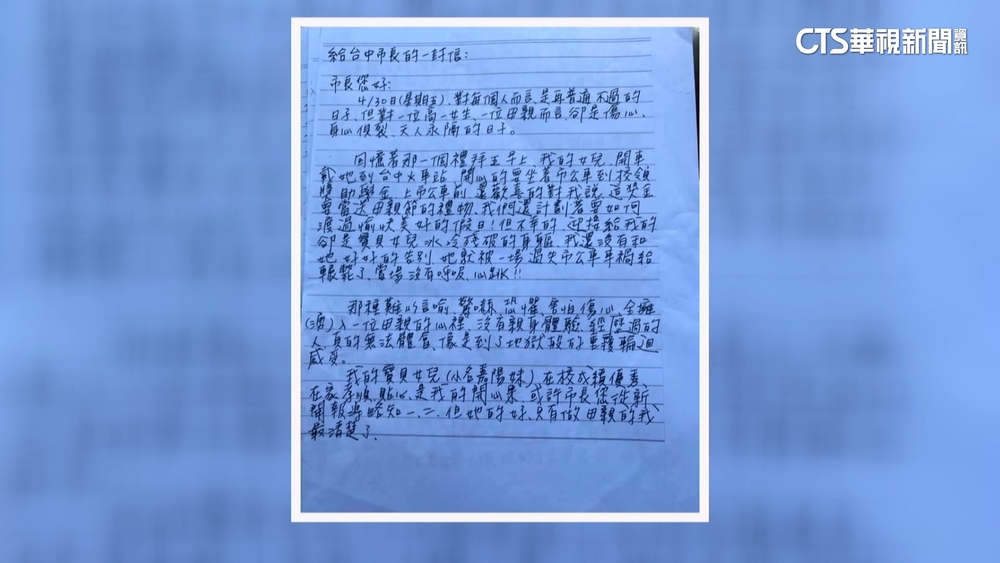 CTS華視新聞資訊
給台中市長的一封信:
市長您好:
4/30日(星期五)、對每個人而言、是再普通不過的
日子、但對一位高一女生、一位母親而言、卻是傷心、
身心俱裂、天人永隔的日子。
回憶著那一個禮拜五早上、我的女兒、開車
載她到台中火車站、開心的要坐著市公車到校領
獎助學金、上市公車前、還歡喜的對我說、這獎金
要當送母親節的禮物、我們還計劃著要如何
渡過愉快美好的假日!但不幸的、迎接給我的
卻是寶貝女兒冰冷殘破的身軀、我還沒有和
她好好的告別、她就被一場過失市公車車禍給
輾斃了、當場沒有呼吸、心跳!!
那種難以言喻、驚嚇、恐懼、害怕、傷心、全癱
入一位母親的心裡、沒有親身體驗、經歷過的
人、真的無法體會、像是到了地獄般的重覆輪迴
感受。
我的寶貝女兒(小名嘉陽妹)在校成績優秀、
在家孝順、貼心、是我的開心果、或許市長您從新
聞報導略知一、二、但她的好、只有做母親的我
最清楚了、